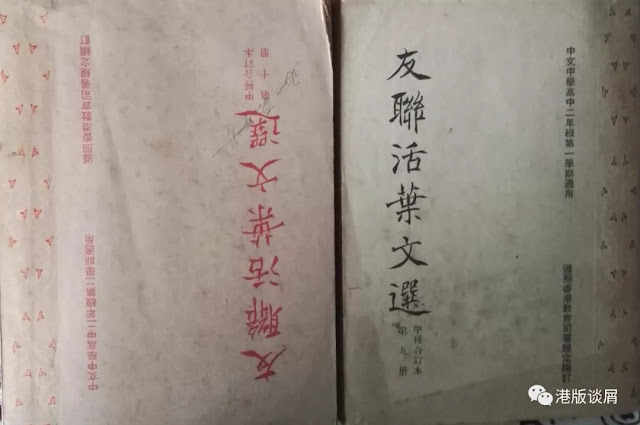 中文中學高中二年級第二學期適用
遵照香港教育司署規定編訂
友聯活葉文選
甲種合訂本
第十册
中文中學高中二年級第一學期適用
遵照香港教育司署規定編訂
友聯活葉文選
甲種合訂本
第九册
港版谈屑